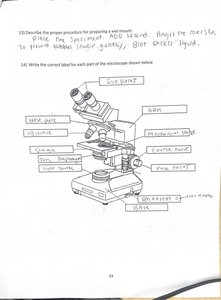 13) Describe the proper procedure for preparing a wet mount:
Place the specimen. ADD liquid. Angel the coverslip
To prevent bubbles lower gently, Blot excess liquid.
14) Write the correct label for each part of the microscope shown below:
Eye pieces
ARM
Nose piece
objective
Mechanical stage
Stage
Course Focus
Iris Diaphragm
light source
Fine Focus
Rheostat control knob
BASE
33